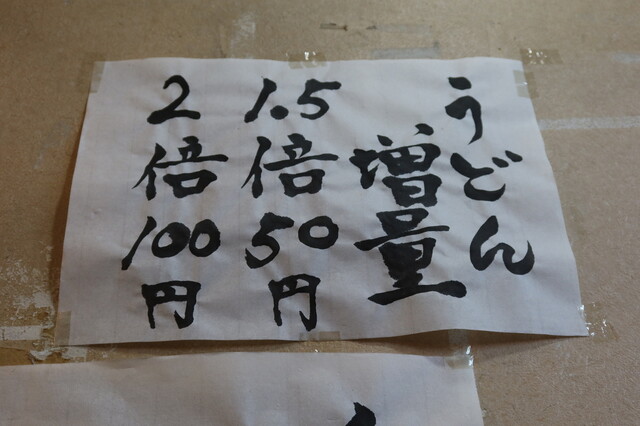 うどん
増量
1.5倍50円
2倍100円